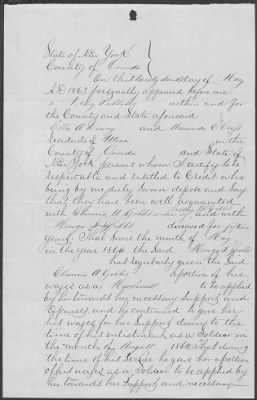 State of New York
County of Oneida
On this twenty second day of May
A.D. 1863 personally appeared before me
a Notary Public within and for
the County and State aforesaid
and
residents of Utica in the
County of Oneida and State of
New York persons whom I certify to be
respectable and entitled to Credit who
being by me duly Sworn depose and Say
that they have been well acquainted
with and with
deceased for fifteen
years. That Since the month of May
in the year 1860 the Said
has regularly given the Said
a portion of his
wages as a to be applied
by her towards her necessary Support and
Expenses, and he continued to give her
his wages for her Support down to the
time of his enlistment as a Soldier in
the month of August 1862 that during
the time of his Service he gave her a portion
of his wages as a Soldier to be applied by
her towards her Support and necessary